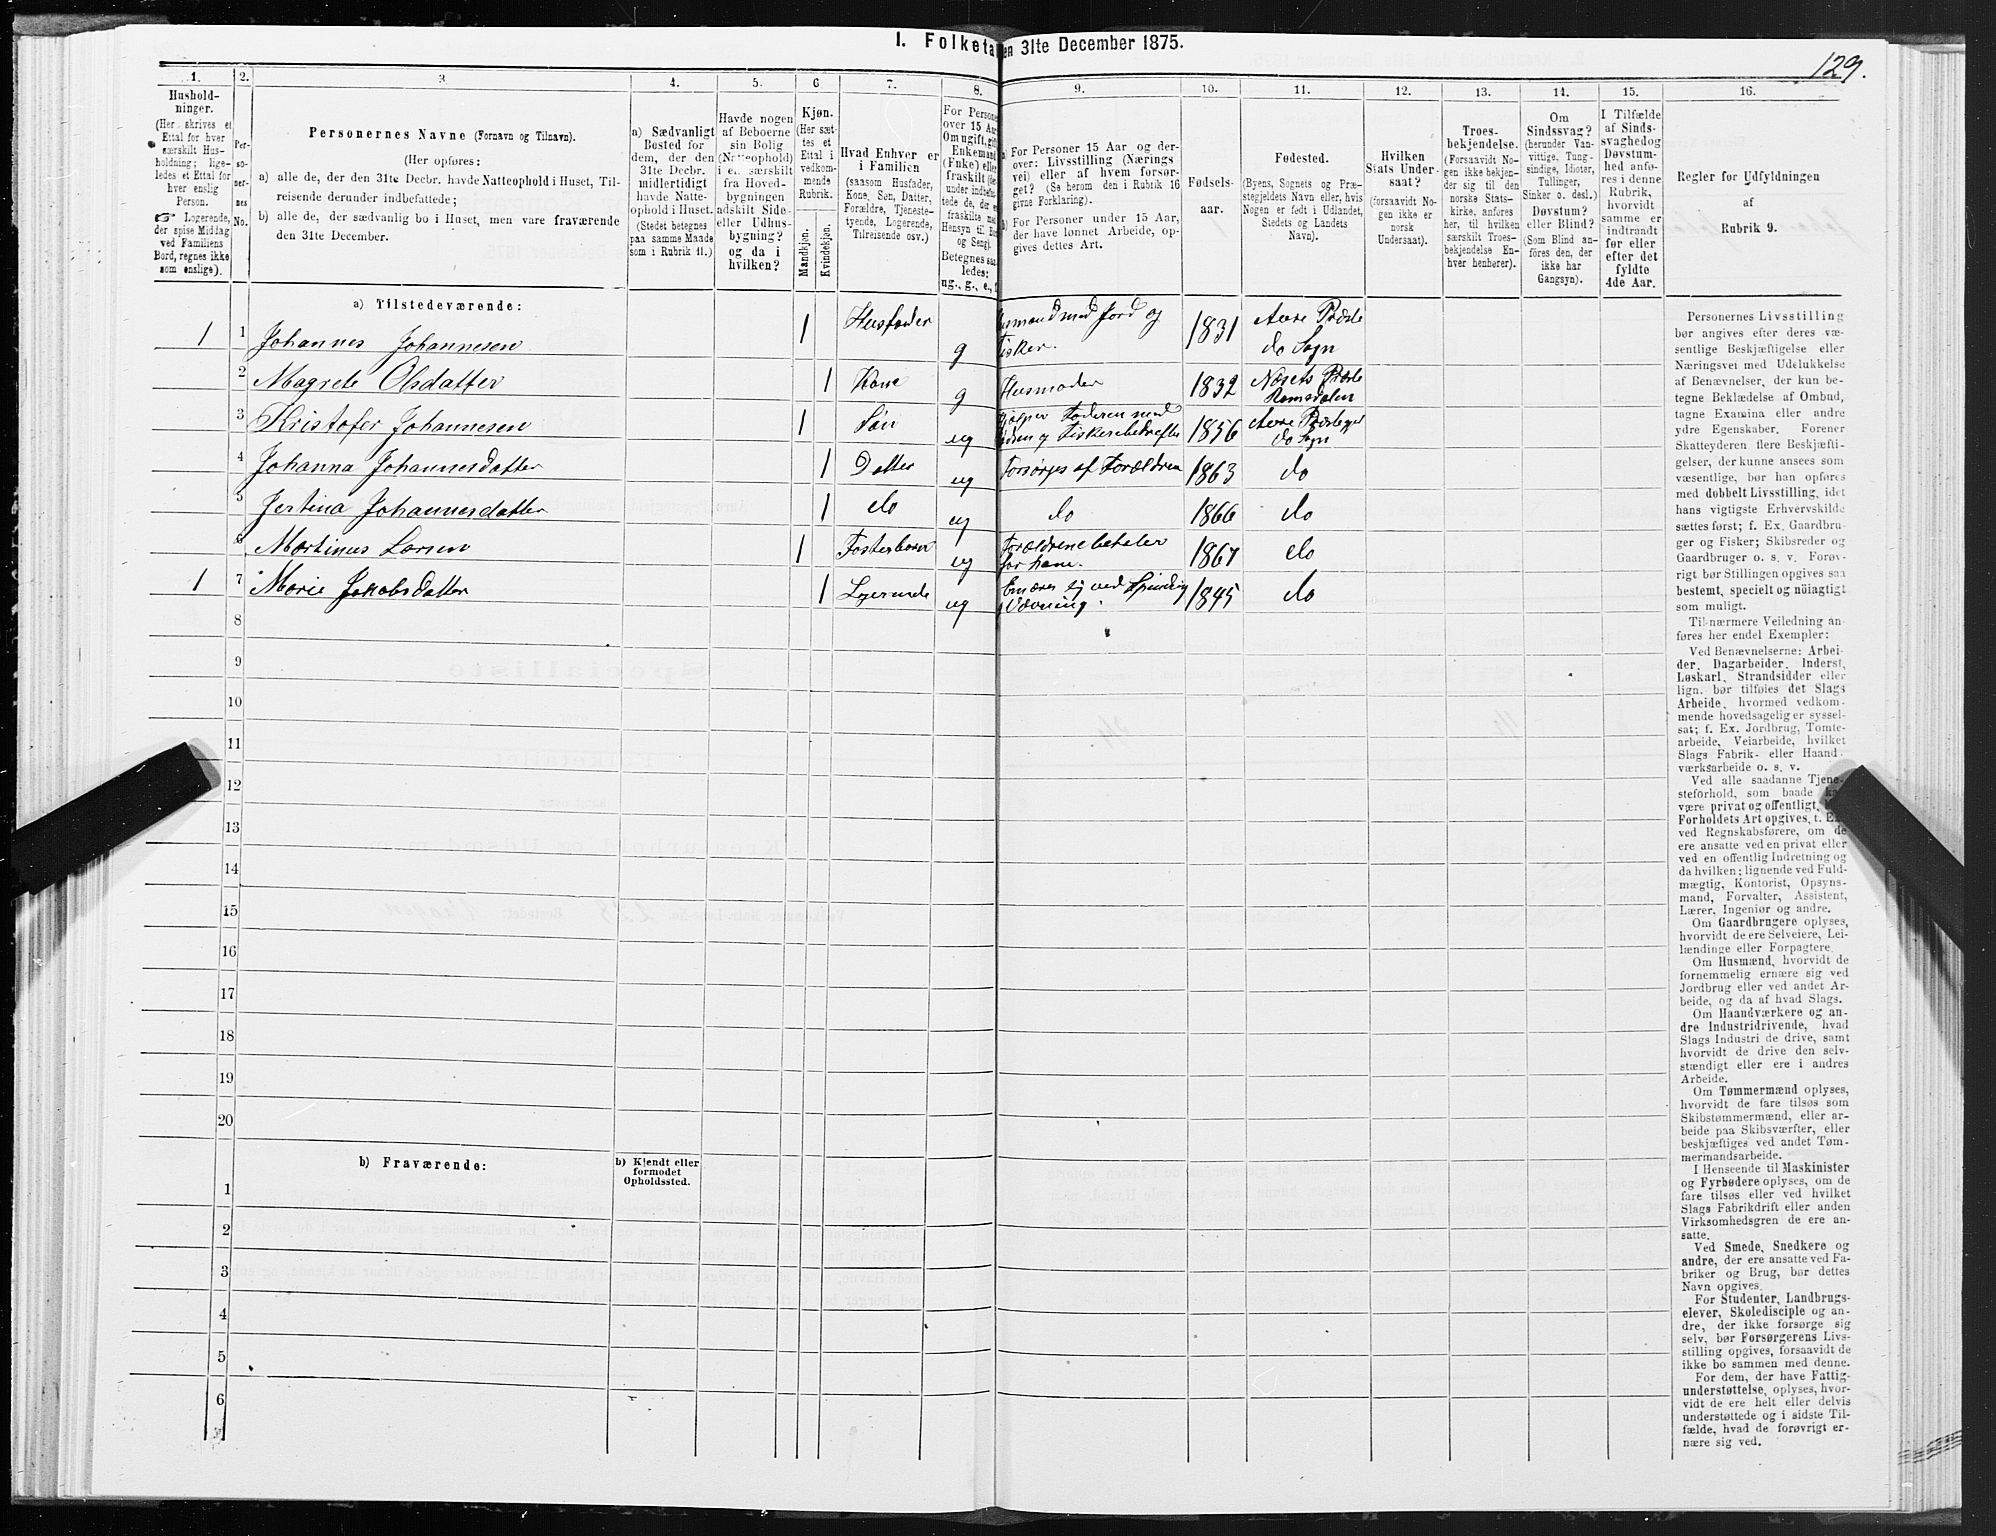 I. Folketa
en 31te December 1875.
129.
1.
2.
3
4.
5.
6
7.
8.
9.
10.
11.
12.
13.
14.
15.
16.
Hushold-
ninger.
(Her skrives et
Ettal for hver
særskilt Hus-
holdning; lige-
ledes et Ettal for
hver enslig
Person.
☞ Logerende,
der spise Middag
ved Familiens
Bord, regnes ikke
som enslige).
Per-
so-
ner-
nes
No.
Personernes Navne (Fornavn og Tilnavn).
(Her opføres:
a) alle de, der den 31te Decbr. havde Natteophold i Huset, Til-
reisende derunder indbefattede;
b) alle de, der sædvanlig bo i Huset, men vare fraværende
den 31te December.
a) Sædvanligt
Bosted for
dem, der den
31te Decbr.
midlertidigt
havde Natte-
ophold i Huset.
(Stedet betegnes
paa samme Maade
som i Rubrik 11.)
Havde nogen
af Beboerne
sin Bolig
(Natteophold)
i en særskilt
fra Hoved-
bygningen
adskilt Side-
eller Udhus-
bygning?
og da i
hvilken?
Kjøn.
(Her sæt-
tes et
Ettal i
vedkom-
mende
Rubrik.
Mandkjøn.
Kvindekjøn.
Hvad Enhver er
i Familien
(saasom Husfader,
Kone, Søn, Datter,
Forældre, Tjeneste-
tyende, Logerende,
Tilreisende osv.)
For Persone
over 15 Aar
Om ugift, gif
Enkemand
(Enke) elle
fraskilt (de
under indbefat
tede de, der e
fraskilte me
Hensyn til Bo
og Seng).
Betegnes saa
ledes:
ug., g., e.,
For Personer 15 Aar og der-
over: Livsstilling (Nærings
vei) eller af hvem forsør-
get? (Se herom den i Rubrik 16
givne Forklaring).
For Personer under 15 Aar,
der have lønnet Arbeide, op-
gives dettes Art.
Fødsels-
aar.
Fødested.
(Byens, Sognets og Præ-
stegjeldets Navn eller, hvis
Nogen er født i Udlandet,
Stedets og Landets
Navn).
Hvilken
Stats Under-
saat?
(forsaavidt No-
gen ikke er
norsk
Undersaat).
Troes-
bekjendelse.
(Forsaavidt No-
gen ikke bekjen-
der sig til den
norske Stats-
kirke, anføres
her, til hvilken
særskilt Troes-
bekjendelse En-
hver henhører).
Om
Sindssvag?
(herunder Van-
vittige, Tung-
sindige, Idioter,
Tullinger,
Sinker o. desl.)
Døvstum?
eller Blind?
(Som Blind an-
føres den, der
ikke har
Gangsyn).
I Tilfælde
af Sinds-
svaghed og
Døvstum-
hed anfø-
res i denne
Rubrik,
hvorvidt
samme er
indtraadt
før eller
efter det
fyldte
4de Aar.
Regler for Udfyldningen
af
Rubrik 9.
a) Tilstedeværende:
1 1 Johannes Johannesen 1 Husfader g usmand med Jord og Fisker. 1831 Aure Præste do Sogn
2 Magrete Olsdatter 1 Kone g Husmoder 1832 Næsets Præste Romsdalen
3 Kristofer Johannesen 1 Søn ug Hjelper Faderen med og Fiskerbedrifte 1856 Aure Præstegj do Sogn
4 Johanna Johannesdatter 1 Datter ug Forsørges af Forældren 1863 do
5 Jertina Johannesdatter 1 do ug do 1866 do
6 Martinus Larsen 1 Fosterbarn ug Forældrene betaler for ham. 1867 do
1 7 Marie Jakobsdatter 1 Logerende ug Ernærer sig ved Spinding Vævning. 1845 do
8
9
10
11
12
13
14
15
16
17
18
19
20
b) Fraværende:
b) Kjendt eller
formodet
Opholdssted.
1
2
3
4
5
6
Personernes Livsstilling
bør angives efter deres væ-
sentlige Beskjæftigelse eller
Næringsvei med Udelukkelse
af Benævnelser, der kun be-
tegne Beklædelse af Ombud,
tagne Examina eller andre
ydre Egenskaber. Forener
Skatteyderen flere Beskjæfti-
gelser, der kunne ansees som
væsentlige, bør han opføres
med dobbelt Livsstilling, idet
hans vigtigste Erhvervskilde
sættes først; f. Ex. Gaardbru-
ger og Fisker; Skibsreder og
Gaardbruger o. s. v. Forøv-
rigt bør Stillingen opgives saa
bestemt, specielt og nöiagtigt
som muligt.
Til nærmere Veiledning an-
føres her endel Exempler:
Ved Benævnelserne: Arbei-
der, Dagarbeider, Inderst,
Løskarl, Strandsidder eller
lign. bør tilføies det Slags
Arbeide, hvormed vedkom-
mende hovedsagelig er syssel-
sat; f. Ex. Jordbrug, Tomte-
arbeide, Veiarbeide, hvilket
Slags Fabrik- eller Haand-
værksarbeide o. s. v.
Ved alle saadanne Tjene-
steforhold, som baade k
være privat og offentligt,
Forholdets Art opgives, t. E
ved Regnskabsførere, om de
ere ansatte ved en privat eller
ved en offentlig Indretning og
da hvilken; lignende ved Fuld-
mægtig, Kontorist, Opsyns-
mand, Forvalter, Assistent,
Lærer, Ingeniør og andre.
Om Gaardbrugere oplyses,
hvorvidt de ere Selveiere, Lei-
lændinge eller Forpagtere.
Om Husmænd, hvorvidt de
fornemmelig ernære sig ved
Jordbrug eller ved andet Ar-
beide, og da af hvad Slags.
Om Haandværkere og an-
dre Industridrivende, hvad
Slags Industri de drive, samt
hvorvidt de drive den selv-
stændigt eller ere i andres
Arbeide.
Om Tømmermænd oplyses,
hvorvidt de fare tilsøs som
Skibstømmermænd, eller ar-
beide paa Skibsværfter, eller
beskjæftiges ved andet Tøm-
mermandsarbeide.
I Henseende til Maskinister
og Fyrbødere oplyses, om de
fare tilsøs eller ved hvilket
Slags Fabrikdrift eller anden
Virksomhedsgren de ere an-
satte.
Ved Smede, Snedkere og
andre, der ere ansatte ved Fa-
briker og Brug, bør dettes
Navn opgives.
For Studenter, Landbrugs-
elever, Skoledisciple og an-
dre, der ikke forsørge sig
selv, bør Forsørgerens Livs-
stilling opgives, forsaavidt de
ikke bo sammen med denne.
For dem, der have Fattig-
understøttelse, oplyses, hvor-
vidt de ere helt eller delvis
understøttede og i sidste Til-
fælde, hvad de forøvrigt er-
nære sig ved.